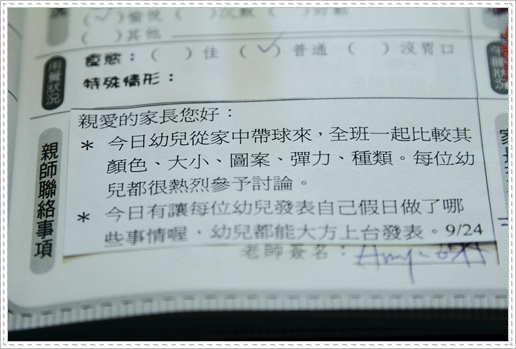 ( ✓ ) 愉悅 ( ) 沉默 ( ) 好動
( ) 其他
食慾：( ) 佳 ( ✓ ) 普通 ( ) 沒胃口
特殊情形：
親愛的家長您好：
* 今日幼兒從家中帶球來，全班一起比較其
顏色、大小、圖案、彈力、種類。每位幼
兒都很熱烈參予討論。
* 今日有讓每位幼兒發表自己假日做了哪
些事情喔，幼兒都能大方上台發表。9/24
親師聯絡事項
老師簽名：Amy